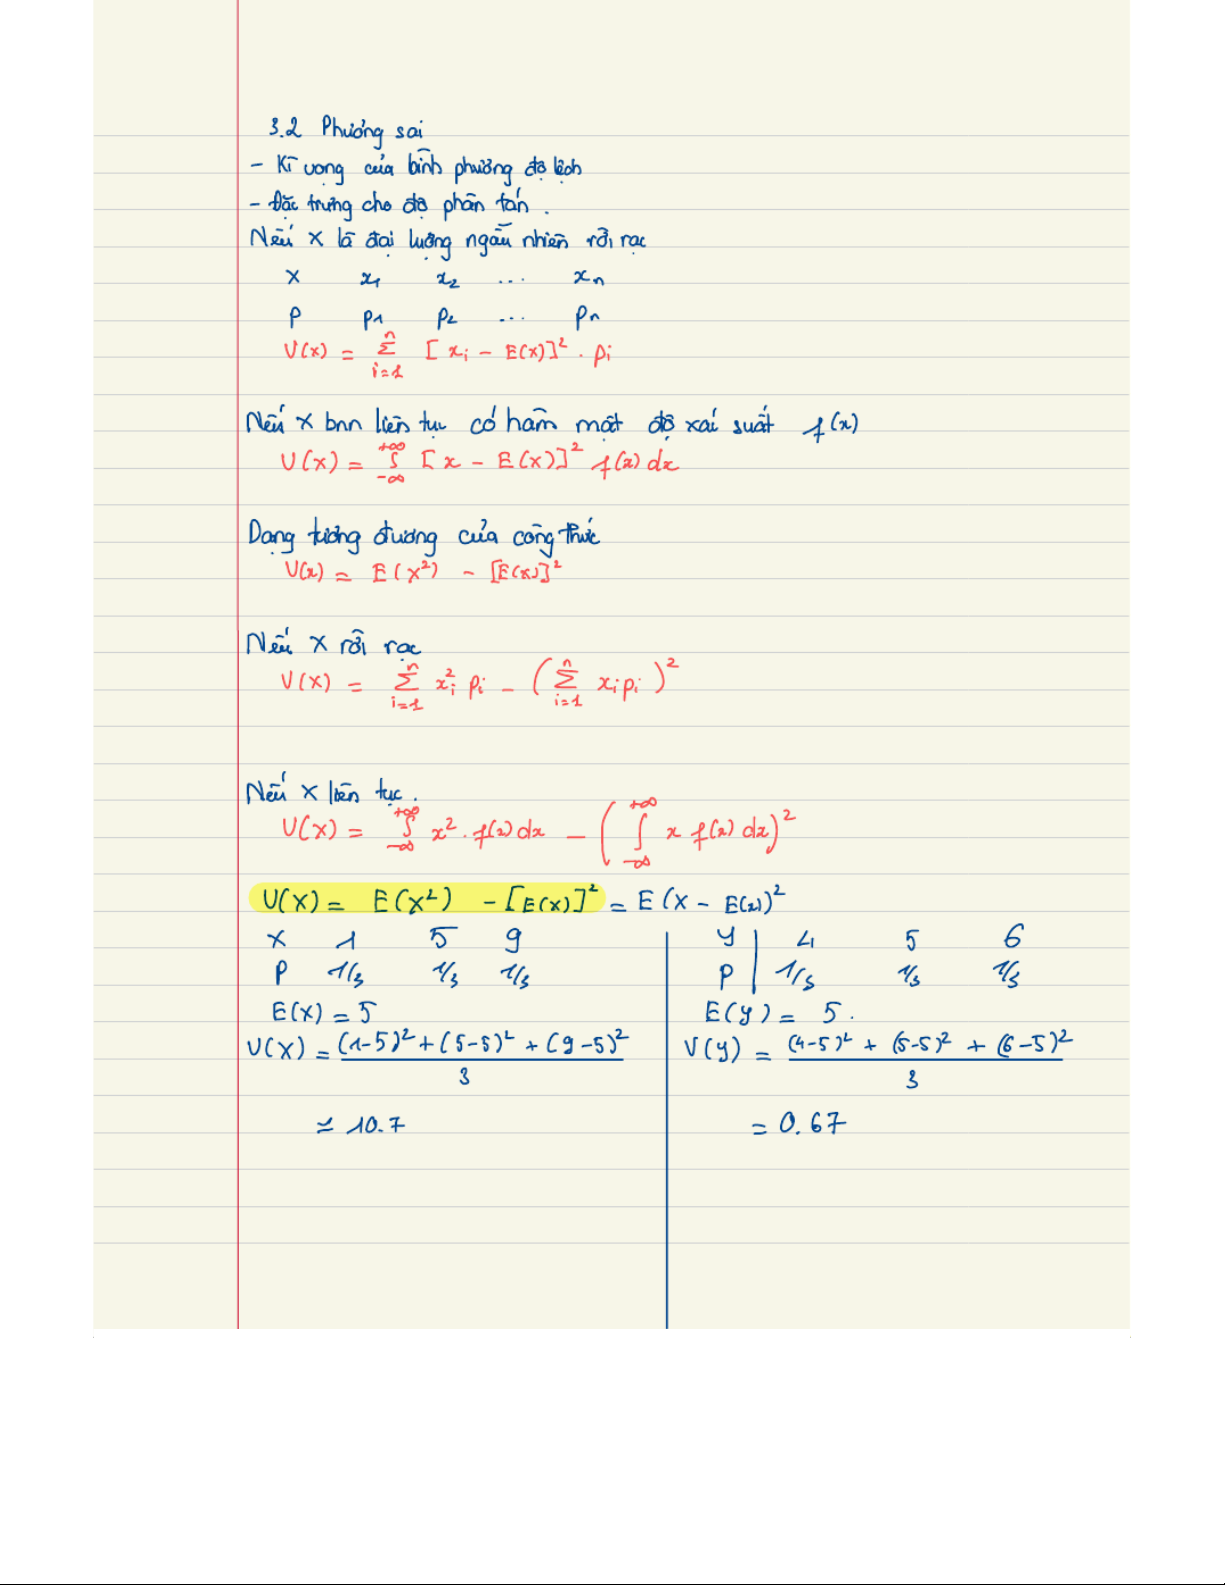 3.2 Phương sai
- Kĩ vọng của bình phương độ lệch
- Đặc trưng cho độ phân tán.
Nếu X là đại lượng ngẫu nhiên rời rạc
X x₁ x₂ ... xₙ
P p₁ p₂ ... pₙ
V(x) = Σᵢ₌₁ⁿ [xᵢ - E(x)]² . pᵢ
Nếu X bnn liên tục có hàm mật độ xác suất f(x)
V(X) = ∫₋∞⁺∞ [x - E(X)]² f(x) dx
Dạng tương đương của công thức
V(x) = E(X²) - [E(X)]²
Nếu X rời rạc
V(X) = Σᵢ₌₁ⁿ xᵢ² pᵢ - (Σᵢ₌₁ⁿ xᵢpᵢ)²
Nếu X liên tục.
V(X) = ∫₋∞⁺∞ x² . f(x) dx - (∫₋∞⁺∞ x f(x) dx)²
V(X) = E(X²) - [E(X)]² = E(X - E(x))²
X 1 5 9
P 1/3 1/3 1/3
E(X) = 5
V(X) = ((1-5)² + (5-5)² + (9-5)²)/3
≃ 10.7
Y 4 5 6
P 1/3 1/3 1/3
E(y) = 5.
V(y) = ((4-5)² + (5-5)² + (6-5)²)/3
= 0.67